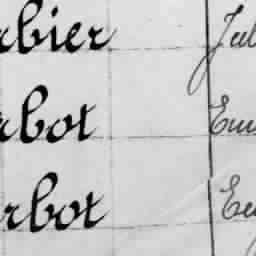 rbier Jul
rbot Em
rbot Eu